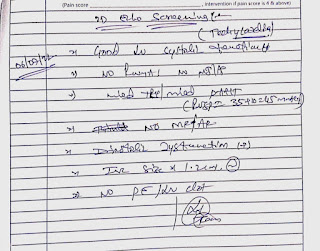 (Pain score , intervention if pain score is 4 & above)
2D Echo Screening
(Tachycardia)
Good LV systolic function
NO RWMA NO
mild TR / mild PAH
(RVSP = 35+10 = 45 mmHg)
NO MR/AR
Diastolic dysfunction (+)
IVC size 1.2cm,
NO PE/LV clot